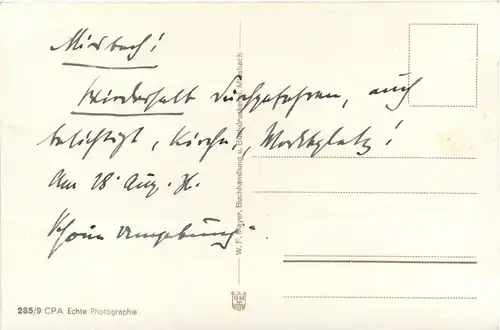 Miesbach!
Wiederholt durchgefahren, auch
besichtigt, Kirche, Marktplatz!
Am 28. Aug. 76.
Schöne Umgebung.
W. F. Mayer, Buchhandlung u. Buchdruckerei, Miesbach
285/9 CPA Echte Photographie